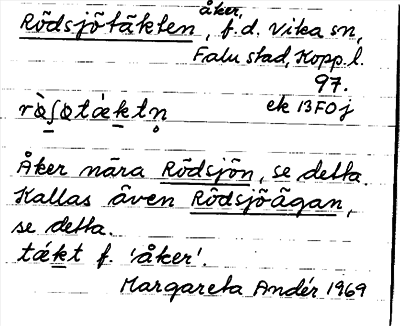 Rödsjötäkten, åker, f.d. Vika sn,
Falu stad, Kopp. l.
97.
ek 13F0j
Åker nära Rödsjön, se detta.
Kallas även Rödsjöägan,
se detta.
täkt f. 'åker'.
Margareta Andér 1969